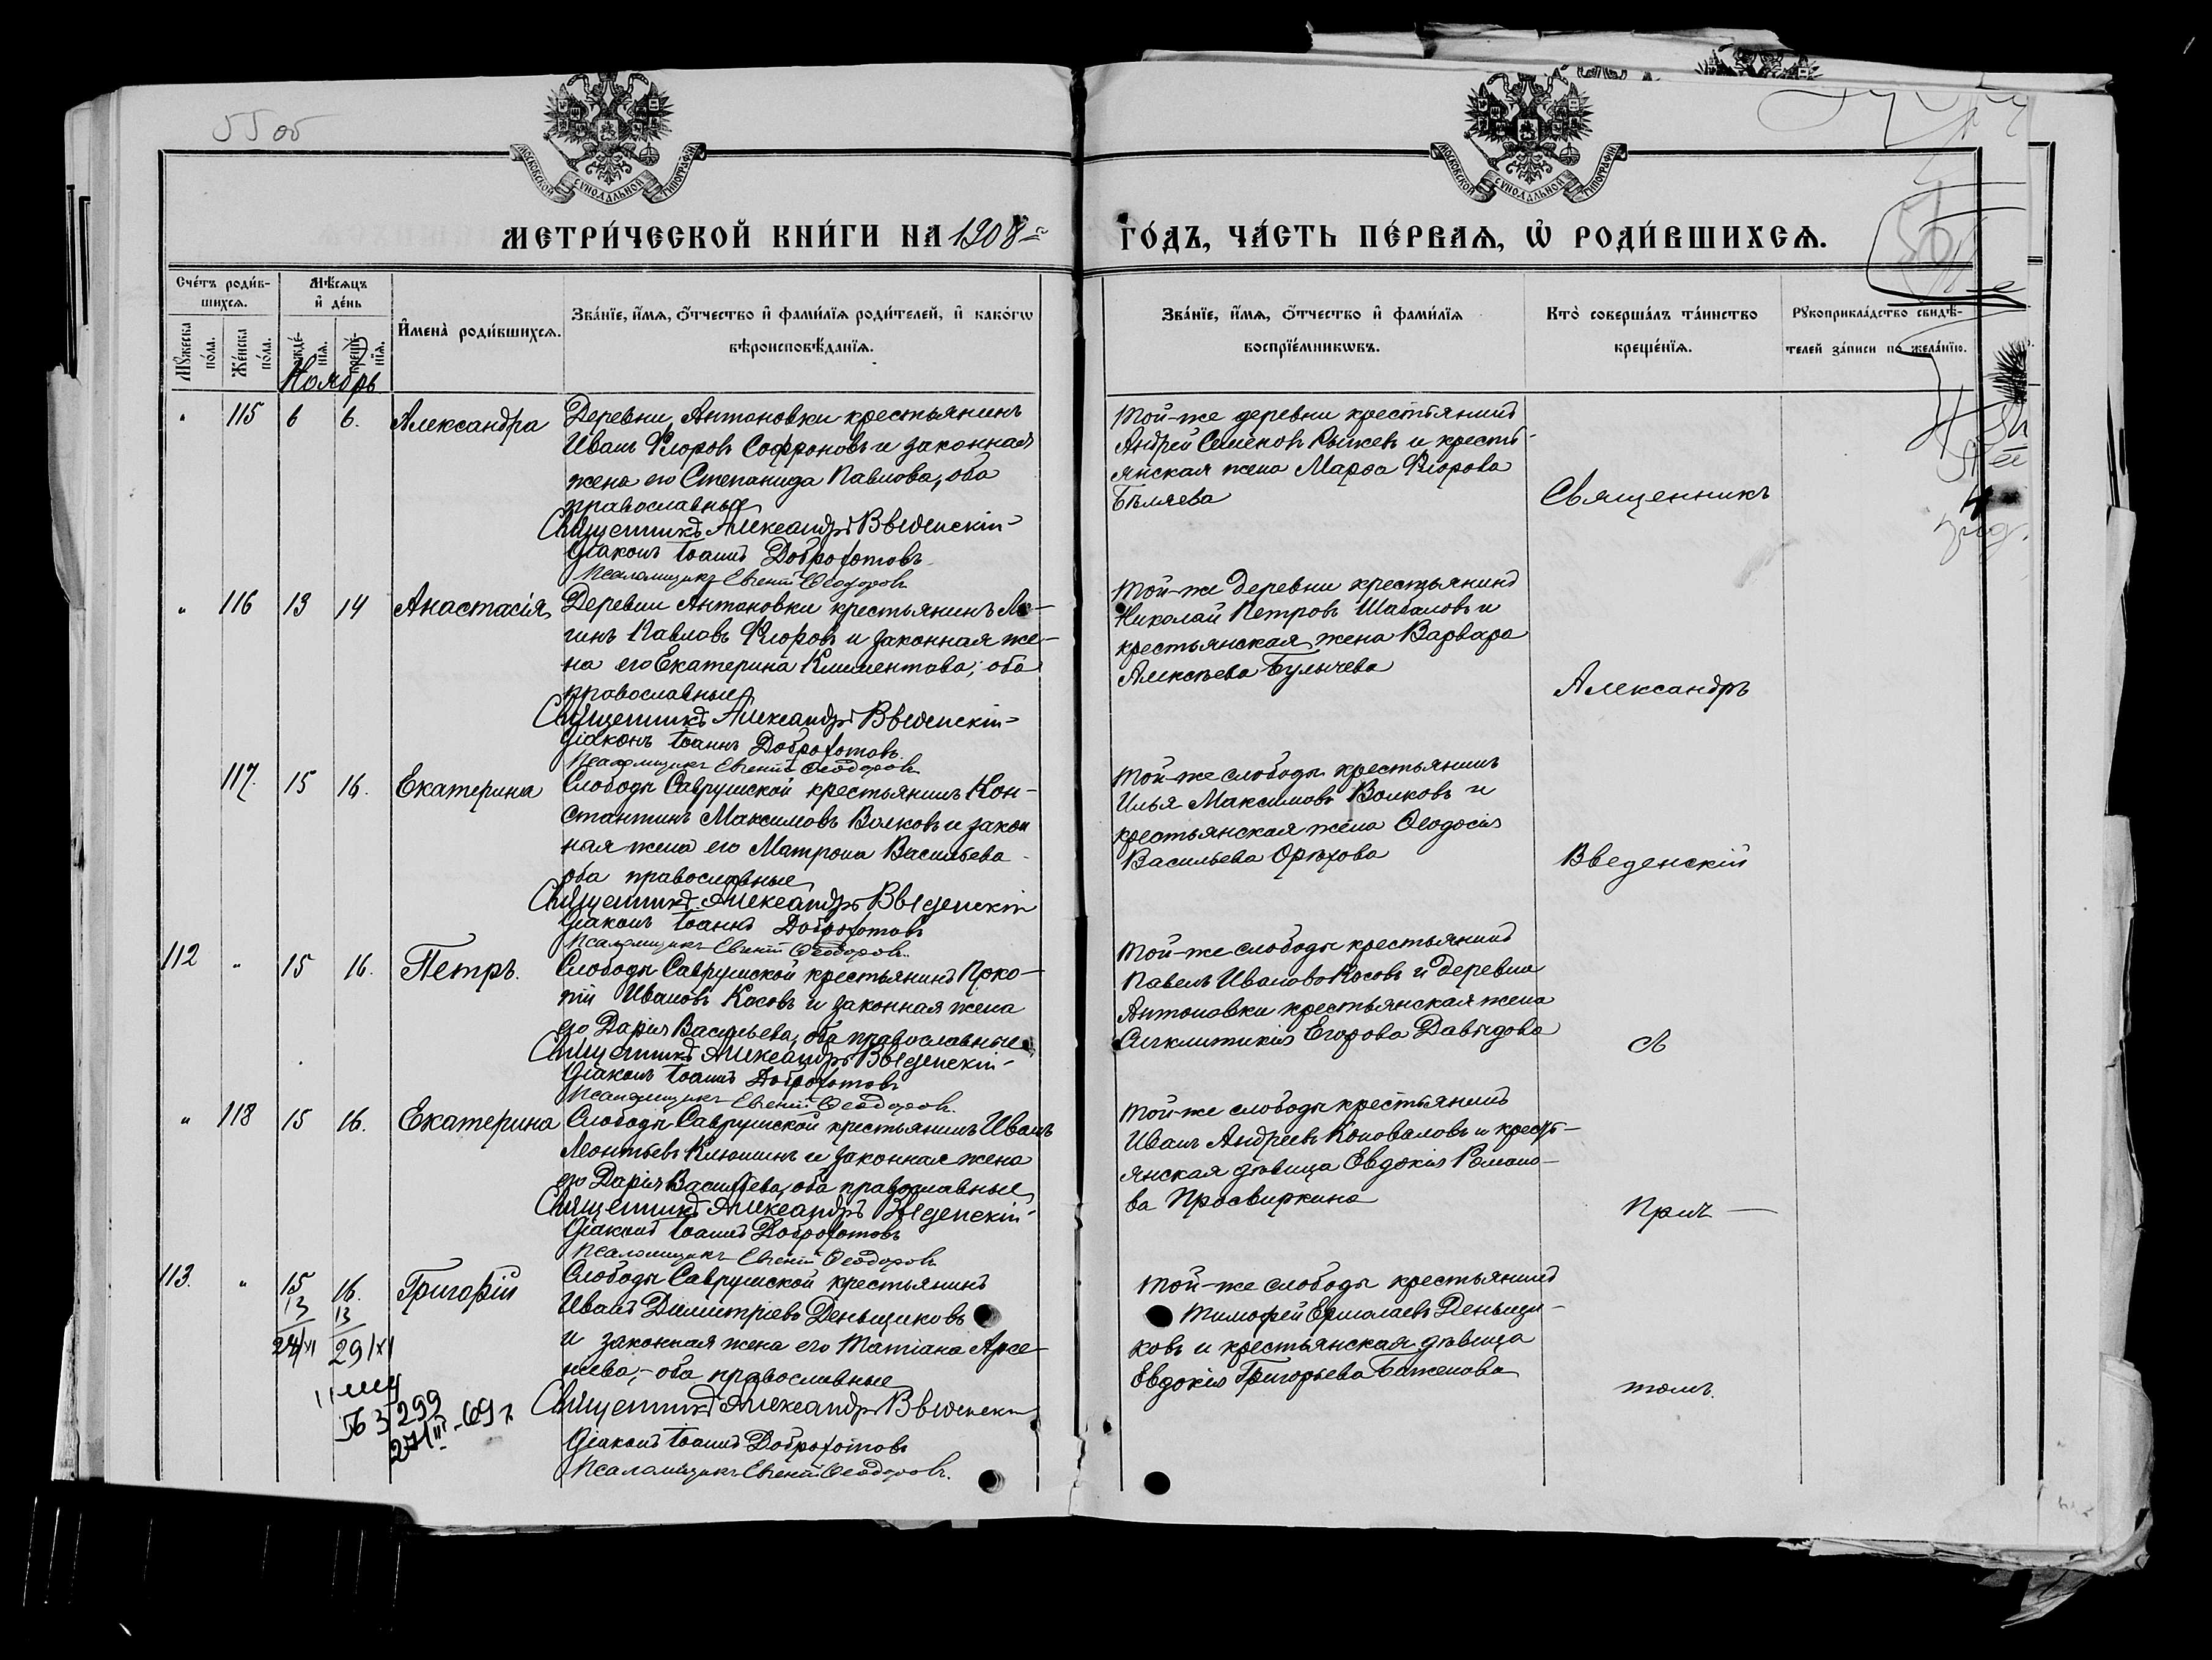 55 об
МОСКОВСКОЙ СѴНОДАЛЬНОЙ ТИПОГРАФІИ
МОСКОВСКОЙ СѴНОДАЛЬНОЙ ТИПОГРАФІИ
МЕТРИ́ЧЕСКОЙ КНИ́ГИ НА 1908 г
ГО́ДЪ, ЧА́СТЬ ПЕ́РВАѦ, Ѡ҆ РОДИ́ВШИХСѦ.
Сче́тъ роди́в-
шихсѧ.
Мѣ́сѧцъ
и҆ де́нь
Мꙋ́жеска
по́ла.
Же́нска
по́ла.
рожде́-
нїѧ.
креще́-
нїѧ.
И҆мена̀ роди́вшихсѧ.
Зва́нїе, и҆́мѧ, ѻ҆́тчество и҆ фами́лїѧ роди́телей, и҆ како́гѡ
вѣроисповѣ́данїѧ.
Зва́нїе, и҆́мѧ, ѻ҆́тчество и҆ фами́лїѧ
воспрїе́мникѡвъ.
Кто̀ соверша́лъ та́инство
креще́нїѧ.
Рꙋкоприкла́дство свидѣ́-
телей за́писи по жела́нїю.
Ноябрь
" 115 6 6. Александра
Деревни Антоновки крестьянинъ
Иванъ Флоровъ Софроновъ и законная
жена его Степанида Павлова, оба
православные
Священникъ Александръ Введенскій
Діаконъ Іоаннъ Доброхотовъ
Псаломщикъ Евгеній Ѳеодоровъ
Той-же деревни крестьянинъ
Андрей Семеновъ Рыжевъ и кресть-
янская жена Марѳа Флорова
Бѣляева
Священникъ
" 116 13 14 Анастасія
Деревни Антоновки крестьянинъ Ло-
гинъ Павловъ Флоровъ и законная же-
на его Екатерина Климентова, оба
православные
Священникъ Александръ Введенскій
Діаконъ Іоаннъ Доброхотовъ
Псаломщикъ Евгеній Ѳеодоровъ
Той-же деревни крестьянинъ
Николай Петровъ Шабаловъ и
крестьянская жена Варвара
Алексѣева Булычева
Александръ
117. 15 16. Екатерина
Слободы Саврушской крестьянинъ Кон-
стантинъ Максимовъ Волковъ и закон
ная жена его Матрона Васильева
оба православные
Священникъ Александръ Введенскій
Діаконъ Іоаннъ Доброхотовъ
Псаломщикъ Евгеній Ѳеодоровъ
Той-же слободы крестьянинъ
Илья Максимовъ Волковъ и
крестьянская жена Ѳеодосія
Васильева Орѣхова
Введенскій
112 " 15 16. Петръ.
Слободы Саврушской крестьянинъ Проко-
пій Ивановъ Косовъ и законная жена
его Дарія Васильева, оба православные
Священникъ Александръ Введенскій
Діаконъ Іоаннъ Доброхотовъ
Псаломщикъ Евгеній Ѳеодоровъ
Той-же слободы крестьянинъ
Павелъ Ивановъ Косовъ и деревни
Антоновки крестьянская жена
Егорова Давыдова
съ
" 118 15 16. Екатерина
Слободы Саврушской крестьянинъ Иванъ
Леонтьевъ Клюшинъ и законная жена
его Дарія Васильева, оба православные
Священникъ Александръ Введенскій
Діаконъ Іоаннъ Доброхотовъ
Псаломщикъ Евгеній Ѳеодоровъ
Той-же слободы крестьянинъ
Иванъ Андреевъ Коноваловъ и кресть-
янская дѣвица Евдокія Романо-
ва Просвиркина
Прич-
113. " 15 16. Григорій
Слободы Саврушской крестьянинъ
Иванъ Димитріевъ Деньщиковъ
и законная жена его Татіана Арсе-
ніева, - оба православные
Священникъ Александръ Введенскій
Діаконъ Іоаннъ Доброхотовъ
Псаломщикъ Евгеній Ѳеодоровъ.
Той-же слободы крестьянинъ
Тимофей Ермолаевъ Деньщи-
ковъ и крестьянская дѣвица
Евдокія Григорьева Баженова
томъ.
13 13
29/XI
299
27/III-69 г.